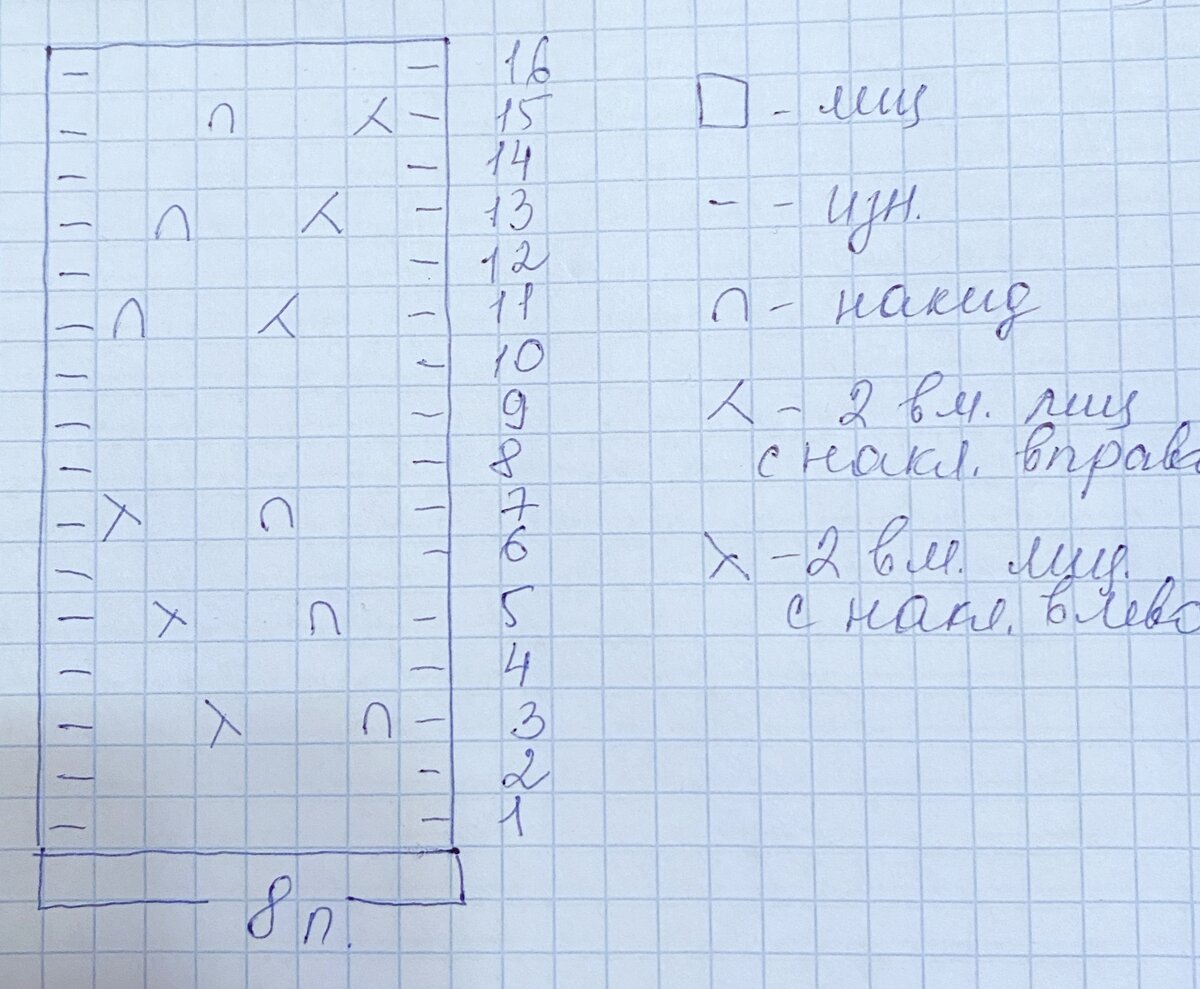 16
15
14
13
12
11
10
9
8
7
6
5
4
3
2
1
8 п.
□ - лиц
- - изн.
∩ - накид
⋌ - 2 вм. лиц
с накл. вправо
⋋ - 2 вм. лиц.
с накл. влево